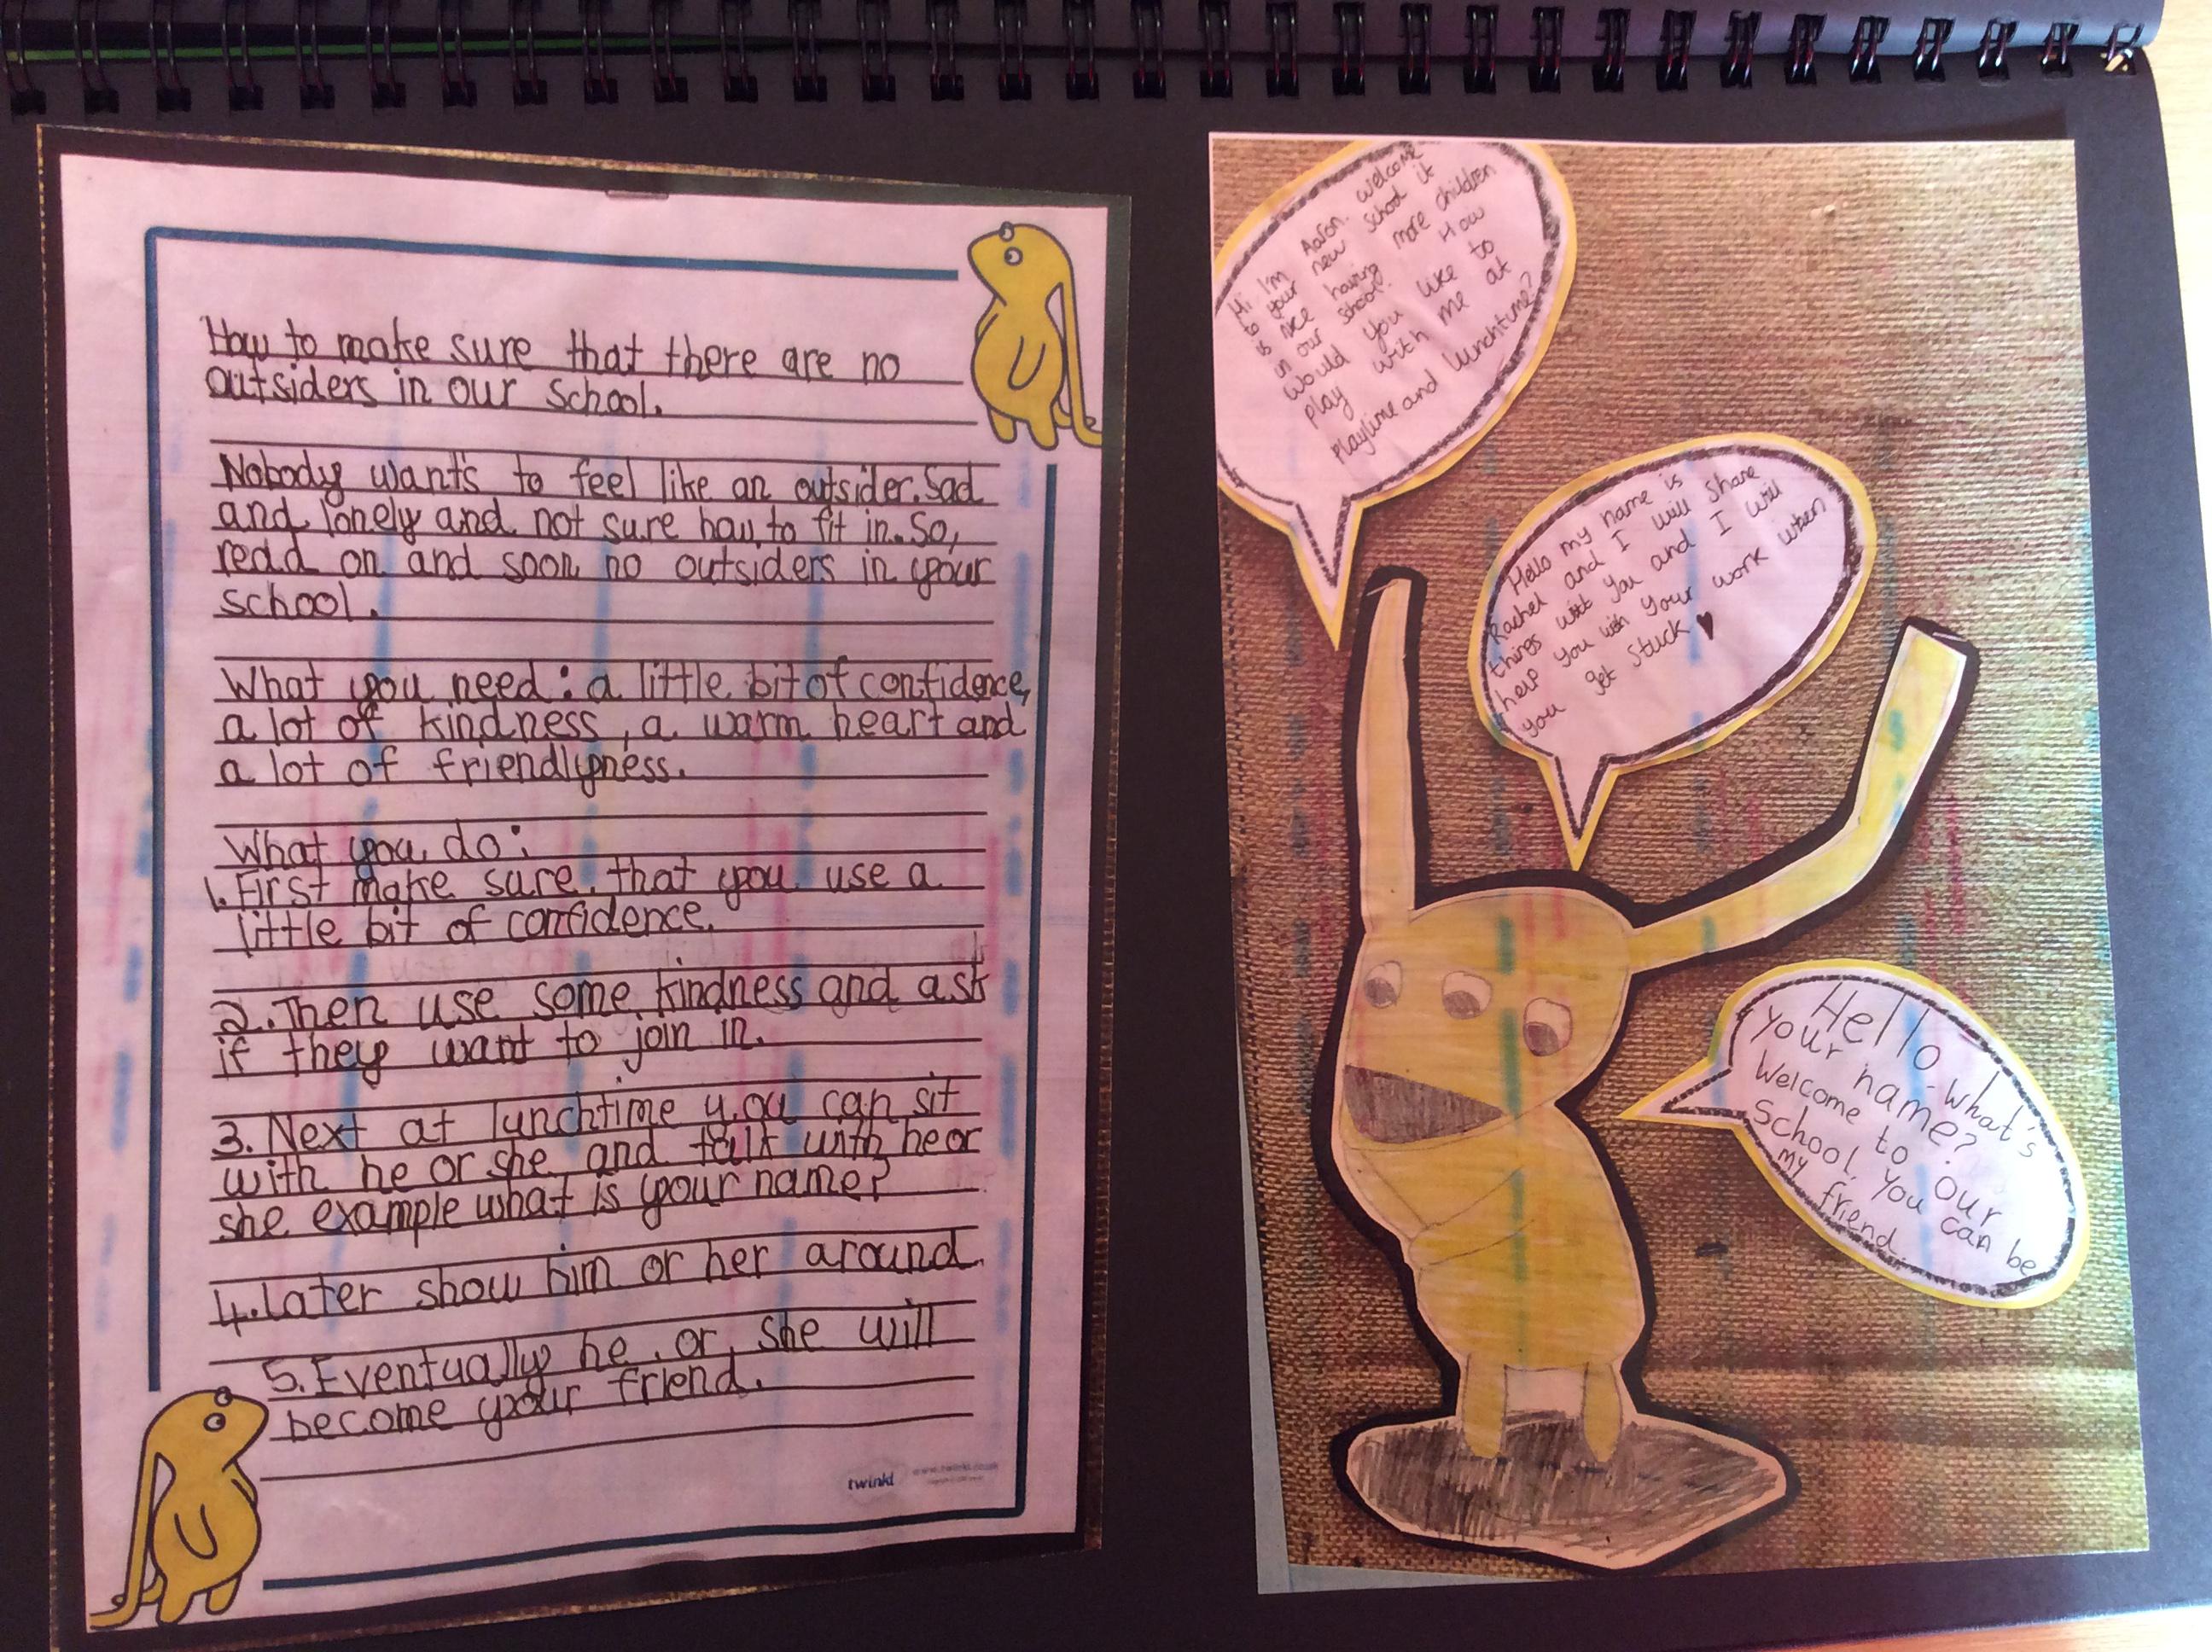 How to make sure that there are no
outsiders in our school.
Nobody wants to feel like an outsider. Sad
and lonely and not sure how to fit in. So,
read on and soon no outsiders in your
school.
What you need: a little bit of confidence,
a lot of kindness, a warm heart and
a lot of friendlyness.
What you do:
1. First make sure that you use a
little bit of confidence.
2. Then use some kindness and ask
if they want to join in.
3. Next at lunchtime you can sit
with he or she and talk with he or
she example what is your name?
4. Later show him or her around.
5. Eventually he or she will
become your friend.
twinkl
www.twinkl.co.uk
Hi I'm Aaron. Welcome
to your new school it
is nice having more children
in our school. How
Would you like to
play with me at
playtime and lunchtime?
Hello my name is
Rachel and I will share
things with you and I will
help you with your work when
you get stuck
Hello. What's
your name?
Welcome to our
School, You can be
my friend.